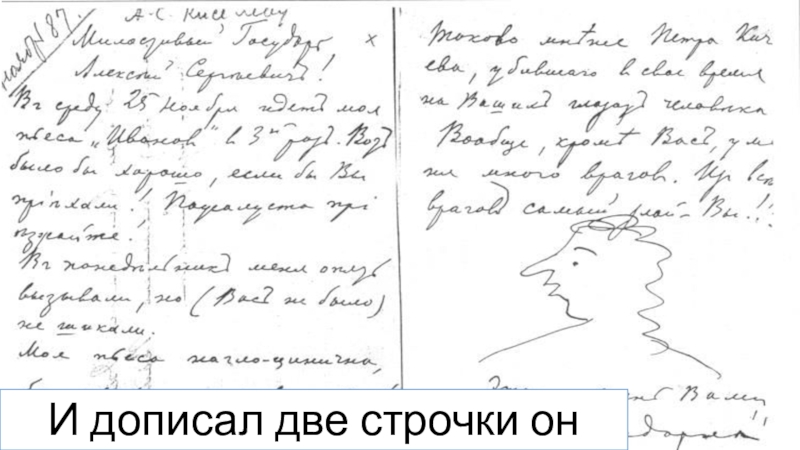 нояб. 87.
А. С. Киселеву
Милостивый Государь
Алексей Сергѣевичъ!
Въ среду 25 Ноября идетъ моя
пьеса „Ивановъ“ въ 3й разъ. Вотъ
было бы хорошо, если бы Вы
пріѣхали! Пожалуста прі
ѣзжайте!
Въ понедѣльникъ меня опять
вызывали, но (Васъ не было)
не шикали.
Моя пьеса нагло-цинична,
таково мнѣніе Петра Кич
ева, убившаго въ свое время
на Вашихъ глазахъ человѣка
Вообще, кромѣ Васъ, у ме
ня много враговъ. Из всѣ
враговъ самый злой – Вы!!
Вамъ
И дописал две строчки он